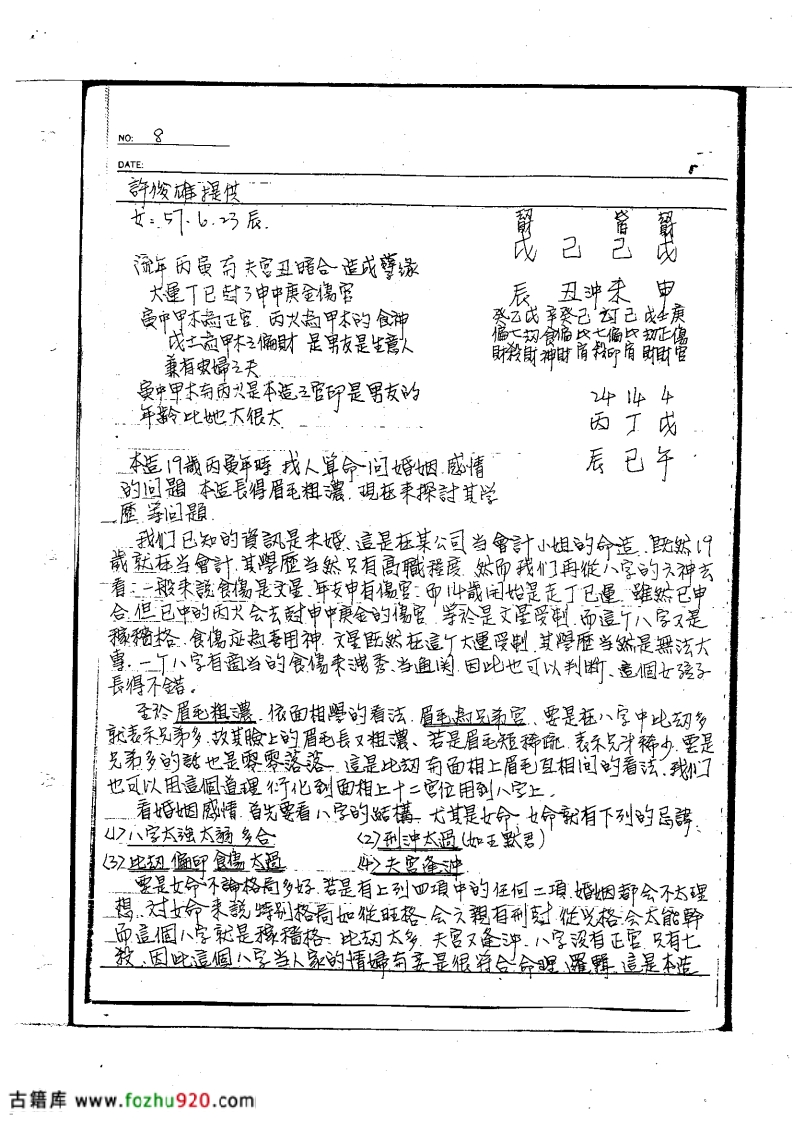 NO: 8
DATE:
8
許俊雄提供
女:57.6.23辰.
劫財 劫財
戊 己 己 戊
流年丙寅而夫宮丑暗合造成孽緣
大運丁巳尅了申中庚金傷官
辰 丑冲未 申
寅中甲木為正官.丙火為甲木的食神
癸乙戊 辛癸己 乙丁己 戊壬庚
戊土為甲木之偏財 是男友是生意人
偏七劫 食偏比 七偏比 劫正傷
兼有婦之夫
財殺財 神財肩 殺印肩 財財官
寅中甲木有丙火是本造之官印是男友的
24 14 4
年齡比她大很大
丙 丁 戊
辰 巳 午
本造19歲丙寅年時 找人算命問婚姻.感情
的問題 本造長得眉毛粗濃.現在來探討其學
歷.等問題.
我们已知的資訊是未婚.這是在某公司当會計小姐的命造.既然19
歲就在当會計.其學歷当然只有高職程度.然而我们再從八字的六神去
看:一般來說食傷是文星.年支申有傷官;而14歲開始是走丁巳運.雖然巳申
合.但巳中的丙火會去尅申中庚金的傷官.等於是文星受制.而這个八字又是
稼穡格.食傷应為喜用神.文星既然在這个大運受制.其學歷当然是無法大
專.一个八字有適当的食傷來洩秀、当通関.因此也可以判断、這個女孩子
長得不錯。
至於眉毛粗濃.依面相學的看法.眉毛為兄弟宮、要是在八字中比劫多
就表示兄弟多.故其臉上的眉毛長又粗濃、若是眉毛短稀疏.表示兄弟稀少.要是
兄弟多的話也是零零落落.這是比劫而面相上眉毛互相間的看法.我们
也可以用這個道理衍化到面相上十二宮位用到八字上。
看婚姻感情.首先要看八字的結構.尤其是女命.女命就有下列的忌諱:
(1)八字太強太弱多合 (2)刑沖太過(如王默君)
(3)比劫偏印食傷太過 (4)夫宮逢沖
要是女命不論格局多好.若是有上列四項中的任何二項.婚姻都會不太理
想.对女命來說特别格局如從旺格.會六親有刑尅.從火格.會太能幹
而這個八字就是稼穡格.比劫太多.夫宮又逢沖.八字没有正官.只有七
殺.因此這個八字当人家的情婦而妾是很符合命理邏輯.這是本造
古籍库 www.fozhu920.com